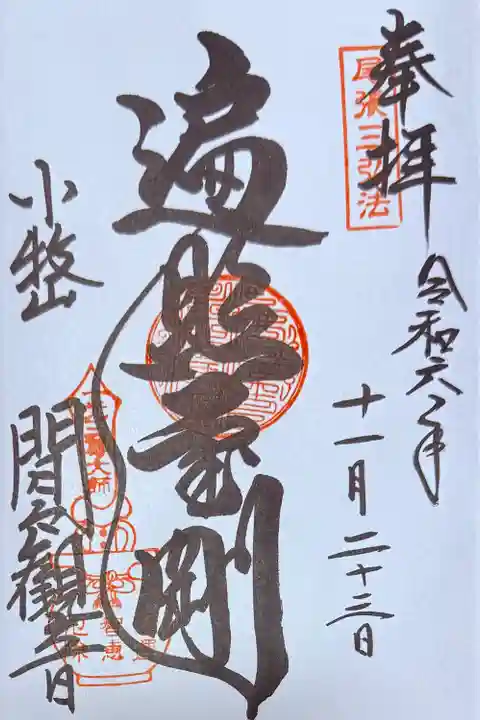 奉拝
尾張三弘法
令和六年
十一月二十三日
遍照金剛
小牧山
間々観音
大師
智恵